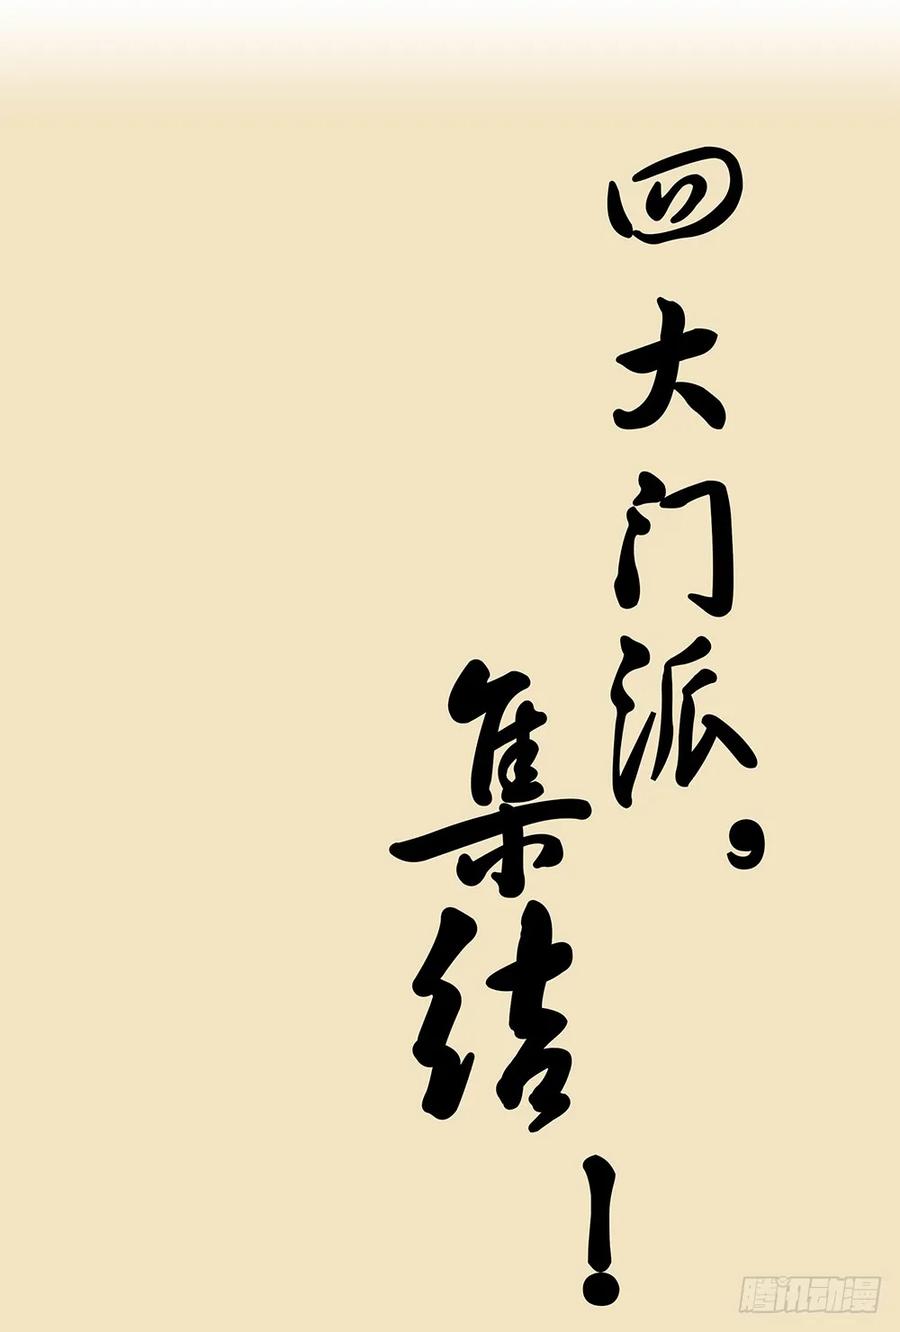 四大门派，
集结！
腾讯动漫